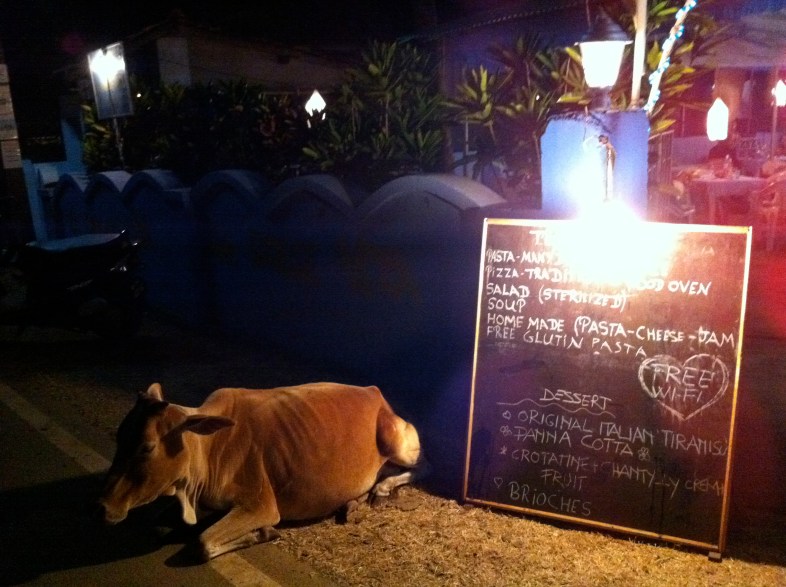 PASTA-MANY
PIZZA-TRADIT OD OVEN
SALAD (STERNIZED)
SOUP
HOME MADE (PASTA-CHEESE-JAM
FREE GLUTIN PASTA
FREE
WI-FI
DESSERT
ORIGINAL ITALIAN TIRAMISÙ
PANNA COTTA
CROTATINE + CHANTY-LY CREAM
FRUIT
BRIOCHES